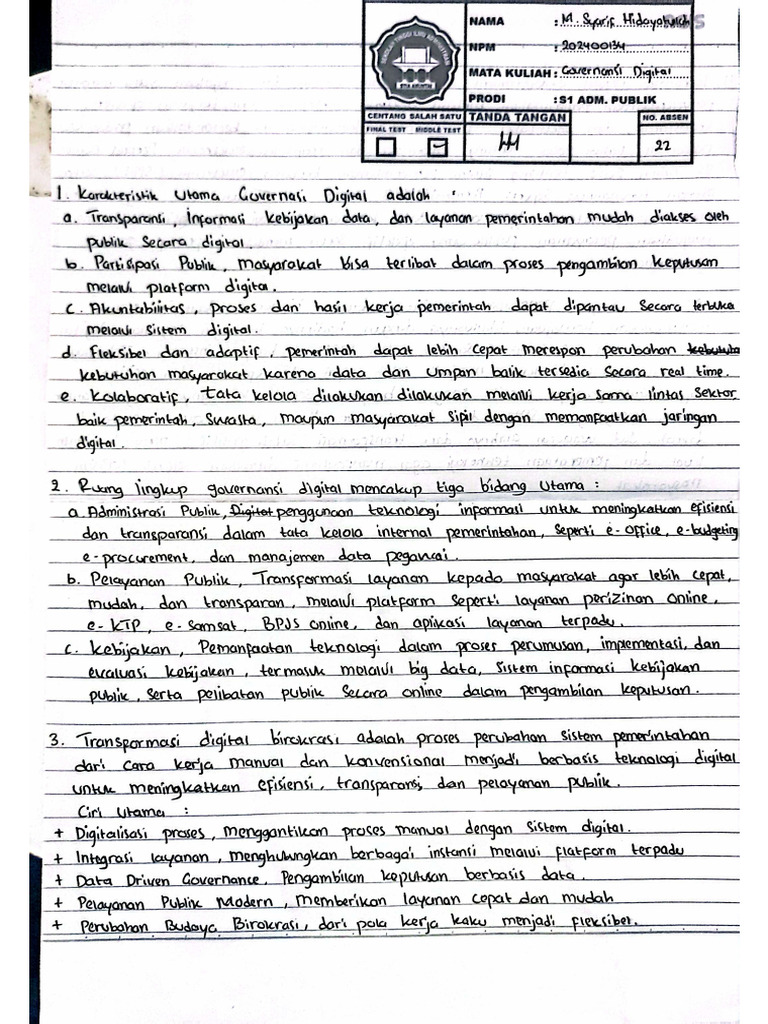 NAMA : M. Syarif Hidayatulloh
NPM : 202400134
MATA KULIAH : Governansi Digital
PRODI : S1 ADM. PUBLIK
CENTANG SALAH SATU TANDA TANGAN NO. ABSEN
FINAL TEST MIDDLE TEST
22
1. Karakteristik Utama Governasi Digital adalah :
a. Transparansi, informasi kebijakan data, dan layanan pemerintahan mudah diakses oleh
publik secara digital.
b. Partisipasi Publik, masyarakat bisa terlibat dalam proses pengambian keputusan
melalui platform digital.
c. Akuntabilitas, proses dan hasil kerja pemerintah dapat dipantau secara terbuka
melalui sistem digital.
d. Fleksibel dan adaptif, pemerintah dapat lebih cepat merespon perubahan kebutuha
kebutuhan masyarakat karena data dan umpan balik tersedia secara real time.
e. Kolaboratif, tata kelola dilakukan dilakukan melalui kerja sama lintas sektor
baik pemerintah, swasta, maupun masyarakat sipil dengan memanfaatkan jaringan
digital.
2. Ruang lingkup governansi digital mencakup tiga bidang utama :
a. Administrasi Publik, Digital penggunaan teknologi informasi untuk meningkatkan efisiensi
dan transparansi dalam tata kelola internal pemerintahan, seperti e-office, e-budgeting
e-procurement, dan manajemen data pegawai.
b. Pelayanan Publik, Transformasi layanan kepada masyarakat agar lebih cepat,
mudah, dan transparan, melalui platform seperti layanan perizinan online,
e-KTP, e-samsat, BPJS online, dan aplikasi layanan terpadu.
c. Kebijakan, Pemanfaatan teknologi dalam proses perumusan, implementasi, dan
evaluasi kebijakan, termasuk melalui big data, sistem informasi kebijakan
publik, serta pelibatan publik secara online dalam pengambilan keputusan.
3. Transpormasi digital birokrasi adalah proses perubahan sistem pemerintahan
dari cara kerja manual dan konvensional menjadi berbasis teknologi digital
untuk meningkatkan efisiensi, transparansi, dan pelayanan publik.
Ciri Utama :
+ Digitalisasi proses, menggantikan proses manual dengan sistem digital.
+ Integrasi layanan, menghubungkan berbagai instansi melalui flatform terpadu
+ Data Driven Governance, Pengambilan keputusan berbasis data.
+ Pelayanan Publik Modern, memberikan layanan cepat dan mudah
+ Perubahan Budaya Birokrasi, dari pola kerja kaku menjadi fleksibel.